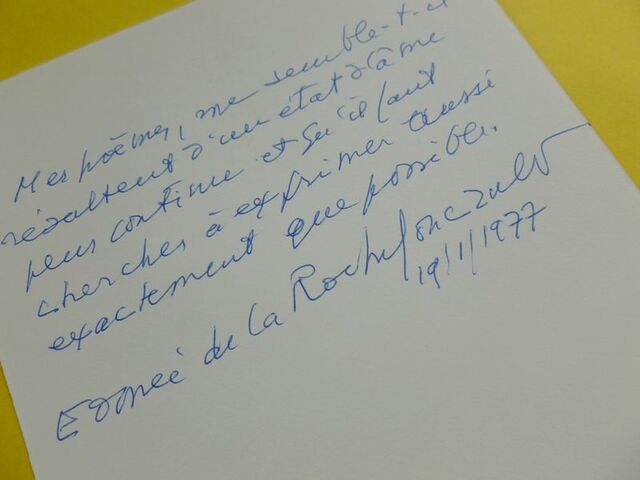 Mes poèmes, me semble-t-il
résultent d'un état d'âme
peu continu et qu'il faut
chercher à exprimer aussi
exactement que possible.
Edmée de La Rochefoucauld
19/1/1977